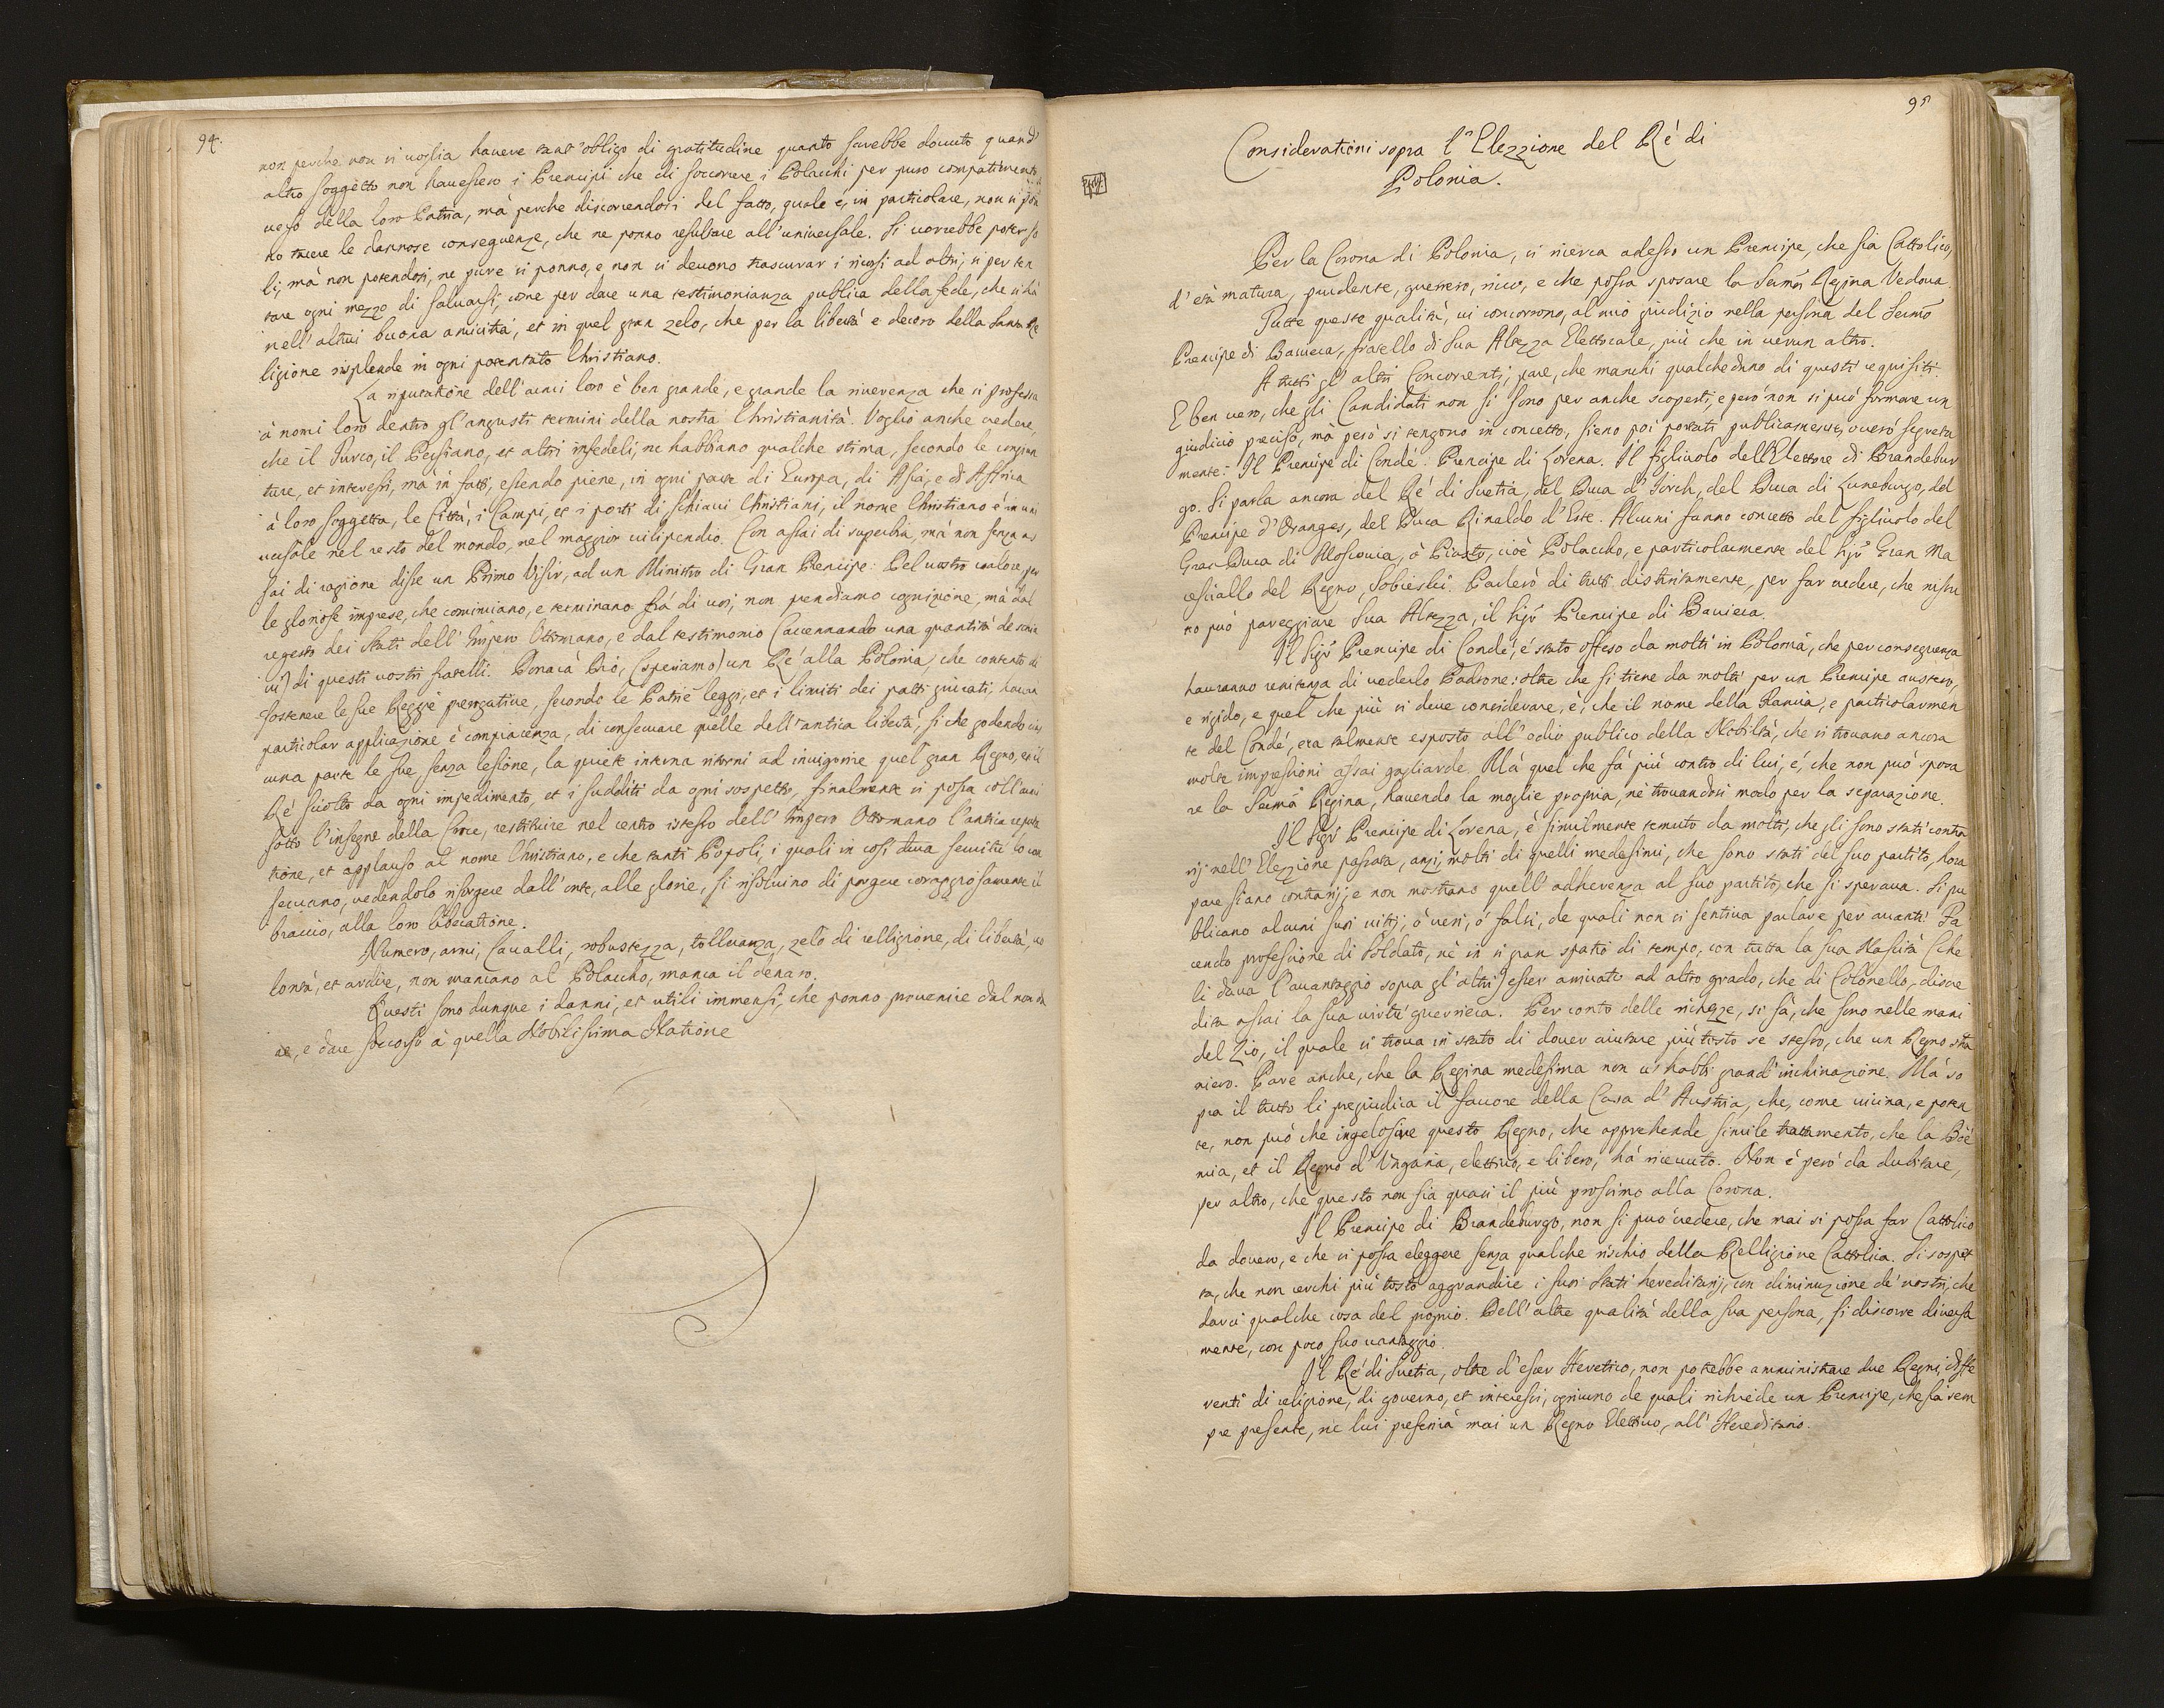 94.
non perche non vi voglia havere tant'obligo di gratitudine quanto sarebbe dovuto quand'
altro soggetto non havessero i Prencipi che di soccorrere i Polacchi per puro compatimento
verso della loro Patria, mà perche discorrendosi del fatto, quale è, in particolare, non si pon
no tacere le dannose conseguenze, che ne ponno resultare all'universale. Si vorrebbe poter so
li, mà non potendosi, ne pure si ponno, e non si devono trascurar i ricorsi ad altri, si per ten
tare ogni mezzo di salvarsi, come per dare una testimonianza publica della fede, che si hà
nell'altrui buona amicitia, et in quel gran zelo, che per la libertà e decoro della Santa Re
ligione risplende in ogni potentato Christiano.
La riputatione dell'armi loro è ben grande, e grande la riverenza che si professa
à nomi loro dentro gl'angusti termini della nostra Christianità. Voglio anche credere,
che il Turco, il Persiano, et altri infedeli, ne habbiano qualche stima, secondo le congiun
ture, et interessi, mà in fatti, essendo piene, in ogni parte di Europa, di Asia, e di Affrica
à loro soggetta, le Città, i Campi, et i porti di schiavi Christiani, il nome Christiano è in uni
versale nel resto del mondo, nel maggior vilipendio. Con assai di superbia, mà non senza as
sai di ragione disse un Primo Visir, ad un Ministro di Gran Prencipe: Del vostro valore, per
le gloriose imprese, che cominciano, e terminano frà di voi, non prendiamo cognizione, mà dal
regesto dei Stati dell'Impero Ottomano, e dal testimonio (accennando una quantità de schia
vi) di questi vostri fratelli. Donarà Dio, (speriamo) un Rè alla Polonia, che contento di
sostenere le sue Reggie prerogative, secondo le Patrie leggi, et i limiti dei patti giurati, haurà
particolar applicazione è compiacenza, di conservare quelle dell'antica libertà, si che godendo cias
cuna parte le sue, senza lesione, la quiete interna ritorni ad invigorire quel gran Regno, et il
Rè sciolto da ogni impedimento, et i sudditi da ogni sospetto, finalmente si possa coll'armi
sotto l'insegne della Croce, restituire nel centro istesso dell'Impero Ottomano l'antica reputa
tione, et applauso al nome Christiano, e che tanti Popoli, i quali in così dura servitù lo con
servano, vedendolo risorgere dall'onte, alle glorie, si risolvino di porgere corraggiosamente il
braccio, alla loro liberatione.
Numero, armi, Cavalli, robustezza, tolleranza, zelo di relligione, di libertà, vo
lontà, et ardire, non mancano al Polaccho, manca il denaro.
Questi sono dunque i danni, et utili immensi, che ponno provenire dal non da
re, e dare soccorso à quella Nobilissima Natione
95
Considerationi sopra l'Elezzione del Rè di
Polonia.
Per la Corona di Polonia, si ricerca adesso un Prencipe, che sia Cattolico,
d'età matura, prudente, guerriero, ricco, e che possa sposare la Serma Regina Vedova.
Tutte queste qualità, vi concorrono, al mio giudizio nella persona del Sermo
Prencipe di Baviera, fratello di Sua Altezza Elettorale, più che in verun altro.
A tutti gl'altri Concorrenti, pare, che manchi qualcheduno di questi requisiti.
E ben vero, che gli Candidati non si sono per anche scoperti, e però non si può formare un
giudicio preciso, mà però si tengono in concetto, sieno poi portati publicamente, overo segreta
mente: Il Prencipe di Condè. Prencipe di Lorena. Il figliuolo dell'Elettore di Brandebur
go. Si parla ancora del Rè di Suetia, del Duca d'Iorch, del Duca di Luneburgo, del
Prencipe d'Oranges, del Duca Rinaldo d'Este. Alcuni fanno concetto del figliuolo del
Gran Duca di Moscovia, ò Piasto, cioè Polaccho, e particolarmente del Sigr Gran Ma
resciallo del Regno, Sobieschi. Parlerò di tutti distintamente, per far vedere, che nissu
no può pareggiare Sua Altezza, il Sigr Prencipe di Baviera.
Il Sigr Prencipe di Condé, é stato offeso da molti in Polonia, che per conseguenza
hauranno renitenza di vederlo Padrone: oltre che si tiene da molti per un Prencipe austero,
e rigido, e quel che più si deve considerare, è, che il nome della Francia, e particolarmen
te del Condé, era talmente esposto all'odio publico della Nobiltà, che si trovano ancora
molte impressioni assai gagliarde. Mà quel che fà più contro di lui, é, che non può sposa
re la Serma Regina, havendo la moglie propria, nè trovandosi modo per la separazione.
Il Sigr Prencipe di Lorena, è similmente temuto da molti, che gli sono stati contra
rij nell'Elezzione passata, anzi, molti di quelli medesimi, che sono stati del suo partito, hora
pare siano contrarij, e non mostrano quell'adherenza al suo partito, che si sperava. Si pu
blicano alcuni suoi vitij, ò veri, ò falsi, de quali non si sentiva parlare per avanti. Fa
cendo professione di Soldato, nè in sì gran spatio di tempo, con tutta la sua Nascita (che
li dava l'avantaggio sopra gl'altri) esser arrivato ad altro grado, che di Colonello, discre
dita assai la sua virtù guerriera. Per conto delle richezze, si sà, che sono nelle mani
del Zio, il quale si trova in stato di dover aiutare più tosto se stesso, che un Regno stra
niero. Pare anche, che la Regina medesima non ci habbi grand'inchinazione. Mà so
pra il tutto li pregiudica il favore della Casa d'Austria, che, come vicina, e poten
te, non può che ingelosire questo Regno, che apprehende simile trattamento, che la Boe
mia, et il Regno d'Ungaria, elettivo, e libero, hà ricevuto. Non è però da dubitare,
per altro, che questo non sia quasi il più prossimo alla Corona.
Il Prencipe di Brandeburgo, non si può credere, che mai si possa far Cattolico
da dovero, e che si possa eleggere senza qualche rischio della Relligione Cattolica. Si sospet
ta, che non cerchi più tosto aggrandire i suoi Stati hereditarij, con diminuzione de' nostri, che
darci qualche cosa del proprio. Dell'altre qualità della sua persona, si discorre diversa
mente, con poco suo vantaggio.
Il Rè di Suetia, oltre d'esser Heretico, non potrebbe amministrare due Regni, diffe
renti di religione, di governo, et interessi, ogniuno de quali richiede un Prencipe, che sia sem
pre presente, nè lui preferirà mai un Regno Elettivo, all'Hereditario.